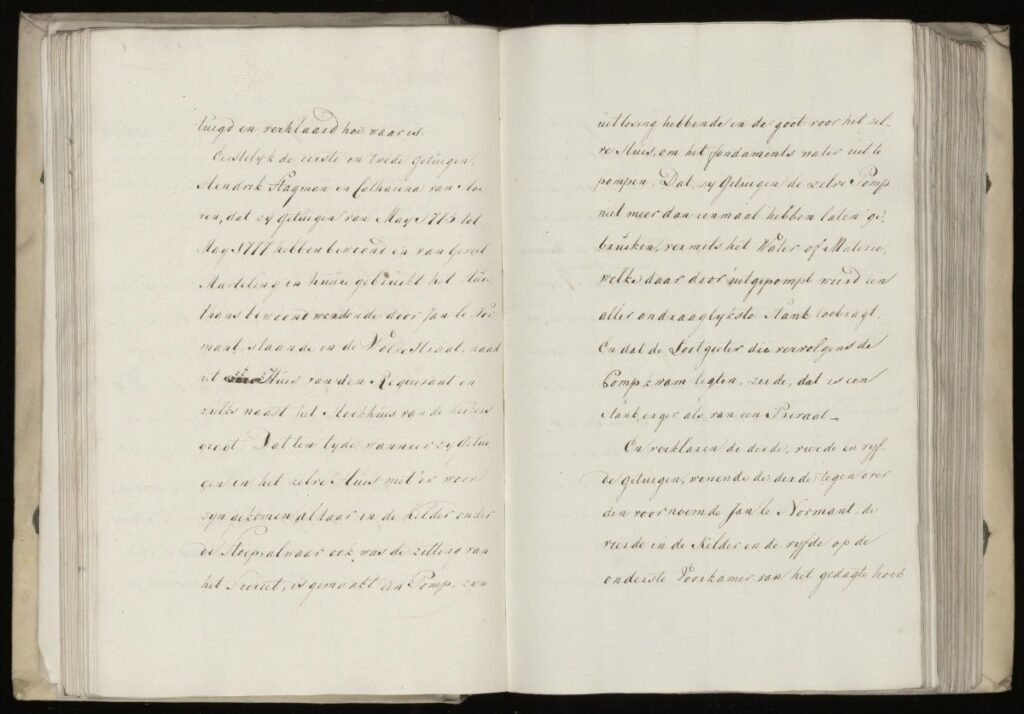 tuigd en verklaard hoe waar is.
Eerstelyk de eerste en twede getuigen,
Hendrik Hagman en Catharina van
ren, dat zy getuigen van May 1775 tot
May 1777 hebben bewoond en van Gerrit
Marteling in huure gebruikt het huis,
thans bewoond werdende door Jan le Nor
mant, staande in de Straat, naast
het Huis van den Requirant en
zulks naast het Hoekhuis van de Keizers
gragt. Dat ten tyde wanneer zy getui
gen in het zelve Huis met 'er woon
zyn gekomen aldaar in de kelder onder
de Stoep, alwaar ook was de zitting van
het Secreet, is gemaakt een Pomp, zyn
uitlosing hebbende in de goot voor het zel-
ve Huis, om het fondaments water uit te
pompen, Dat zy Getuigen de zelve Pomp
niet meer dan eenmaal hebben laten ge-
bruiken, vermits het Water of Materie,
welke daar door uitgepompt wierd een
aller ondraaglykste stank toebragt,
En dat de Lootgieter die vervolgens de
Pomp kwam ligten, zeide, dat is een
stank erger als van een Privaat
En verklaren de derde, vierde en vyf-
de getuigen, wonende de derde tegen over
den voornoemde Jan le Normant, de
vierde in de Kelder en de vyfde op de
onderste Voorkamer van het gedagte hoek